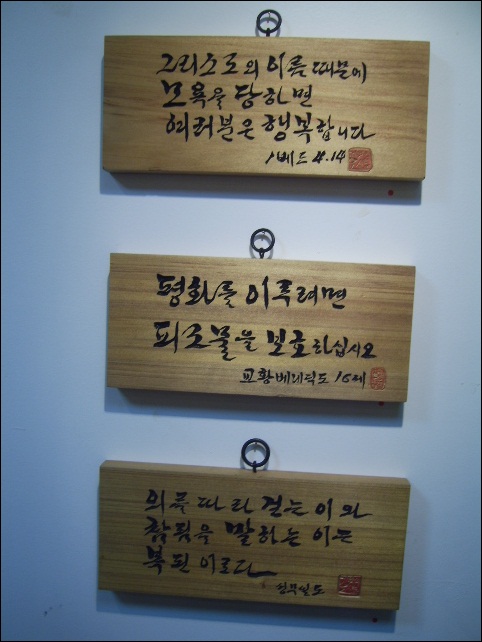 그리스도의 이름 때문에
모욕을 당하면
여러분은 행복합니다
1베드 4.14
평화를 이루려면
피조물을 보호하십시오
교황베네딕도 16세
의를 따라 걷는 이와
참됨을 말하는 이는
복된 이로다
성무일도